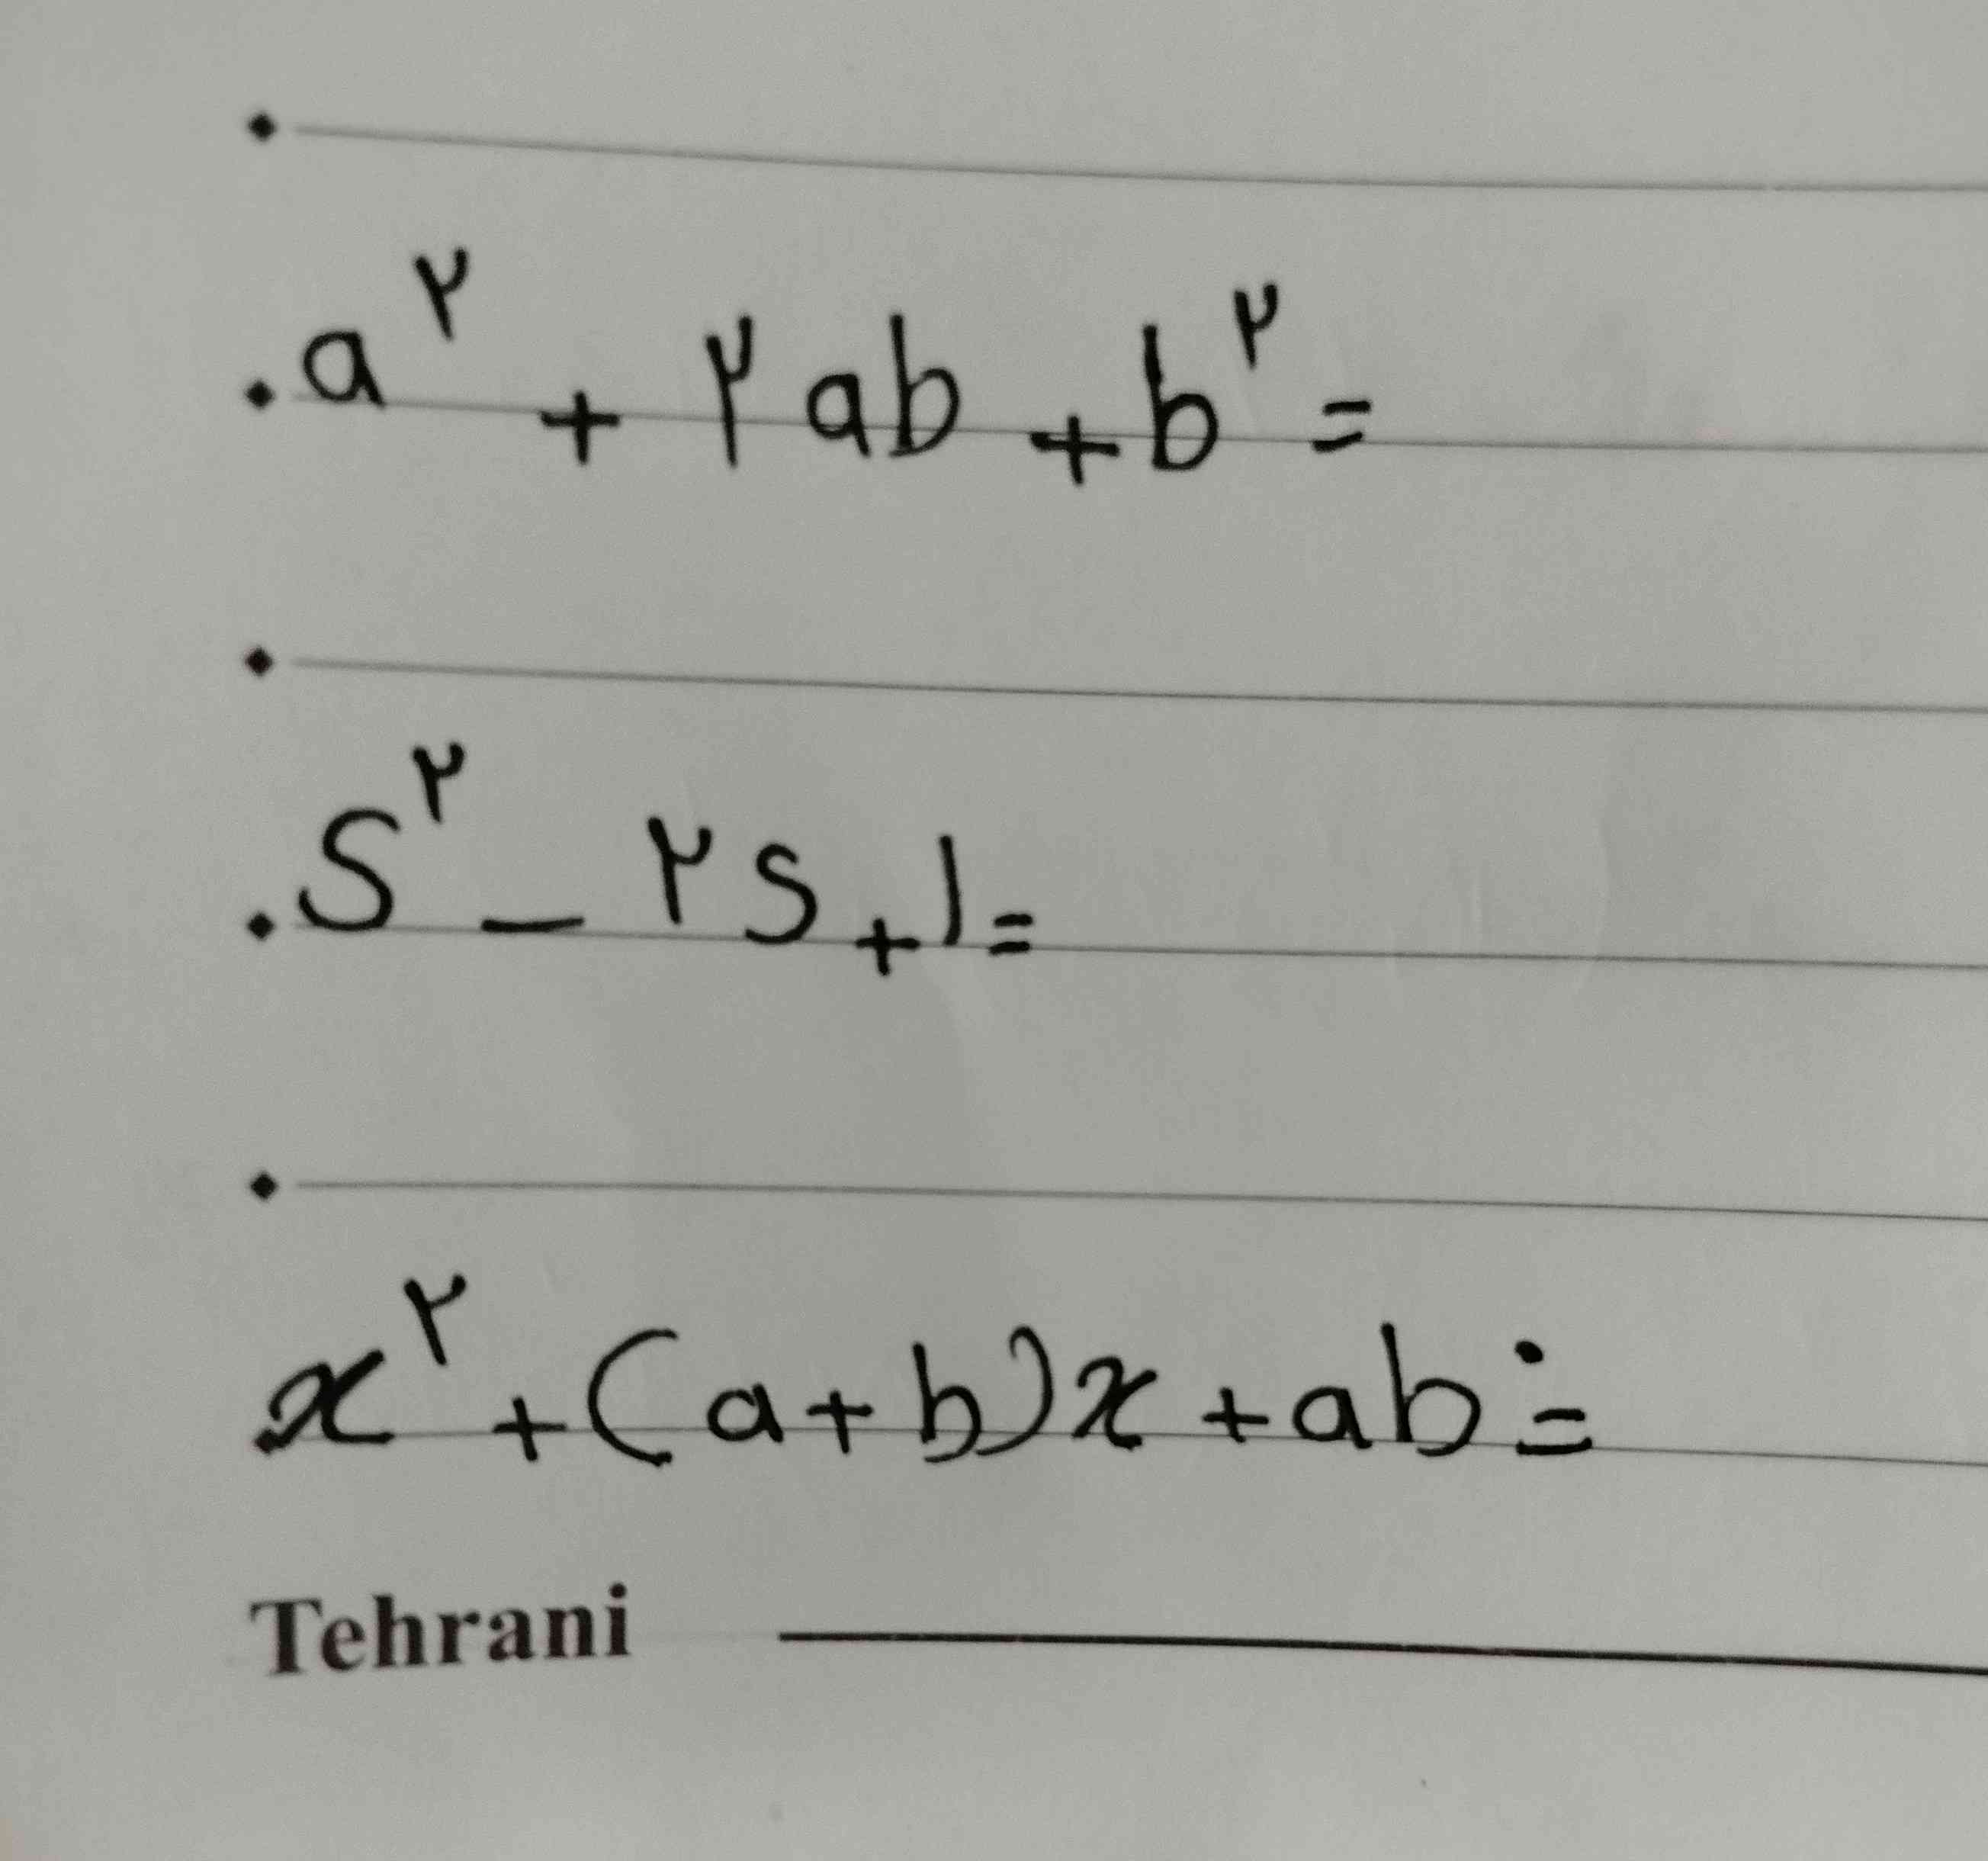 a^۲ + ۲ab + b^۲ =
S^۲ - ۲S + ۱ =
x^۲ + (a+b)x + ab =
Tehrani